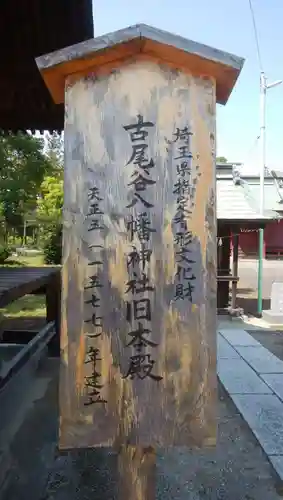 埼玉県指定有形文化財
古尾谷八幡神社旧本殿
天正五(一五七七)年建立